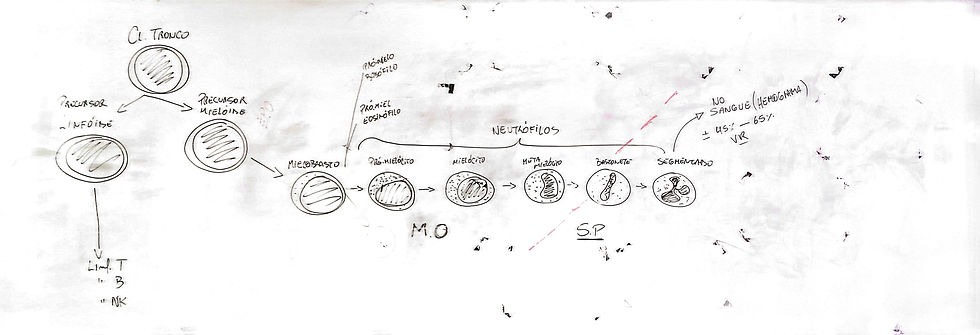 CL. TRONCO
PRECURSOR
LINFÓIDE
PRECURSOR
MIELÓIDE
PRÓMIELO
BASÓFILO
PRÓMIEL
EOSINÓFILO
NEUTRÓFILOS
MIELOBLASTO
PRÓ-MIELÓCITO
MIELÓCITO
META
MIELÓCITO
BASTONETE
SEGMENTADO
NO
SANGUE (HEMOGRAMA)
± 45% — 65%
VR
M.O
S.P
Linf. T
" B
" NK